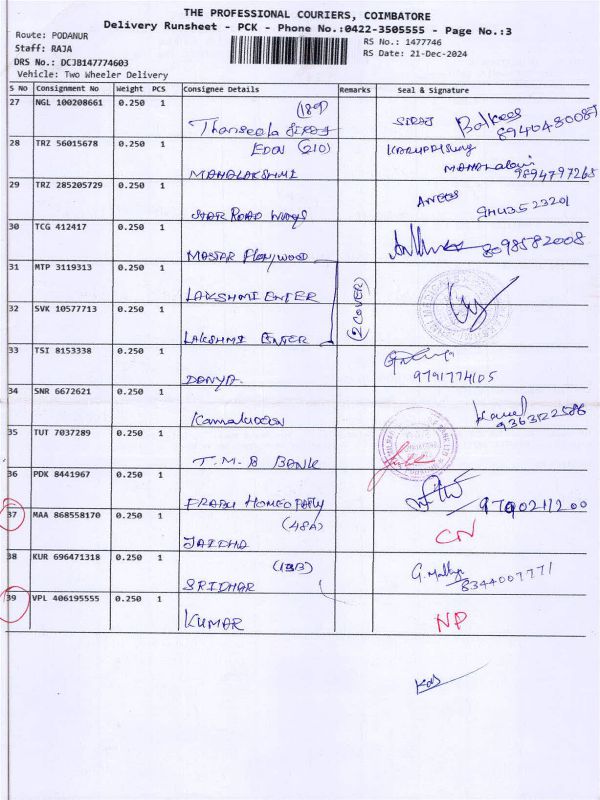 THE PROFESSIONAL COURIERS, COIMBATORE
Delivery Runsheet - PCK - Phone No.:0422-3505555 - Page No.:3
Route: PODANUR
Staff: RAJA
DRS No.: DCJB147774603
Vehicle: Two Wheeler Delivery
RS No.: 1477746
RS Date: 21-Dec-2024
S No Consignment No Weight PCS Consignee Details Remarks Seal & Signature
27 NGL 100208661 0.250 1 (189)
Thanseela SIRAJ SIRAJ
28 TRZ 56015678 0.250 1 EDON (210)
MAHALAKSHMI Mahalakshmi 9894797265
29 TRZ 285205729 0.250 1 ANEES
STAR ROAD WAYS
30 TCG 412417 0.250 1
MASTAR PLAYWOOD 8098582008
31 MTP 3119313 0.250 1
LAKSHMI ENTER (2 COVER)
32 SVK 10577713 0.250 1
LAKSHMI ENTER
33 TSI 8153338 0.250 1
DANYA 9791774105
34 SNR 6672621 0.250 1
Kamaludeen 9363122586
35 TUT 7037289 0.250 1
T.M.B BANK
36 PDK 8441967 0.250 1
PRABU HOMEO PATHY
37 MAA 868558170 0.250 1 (48A)
JAIDHA CN
38 KUR 696471318 0.250 1 (13B)
SRIDHAR 8344007771
39 VPL 406195555 0.250 1
KUMAR NP